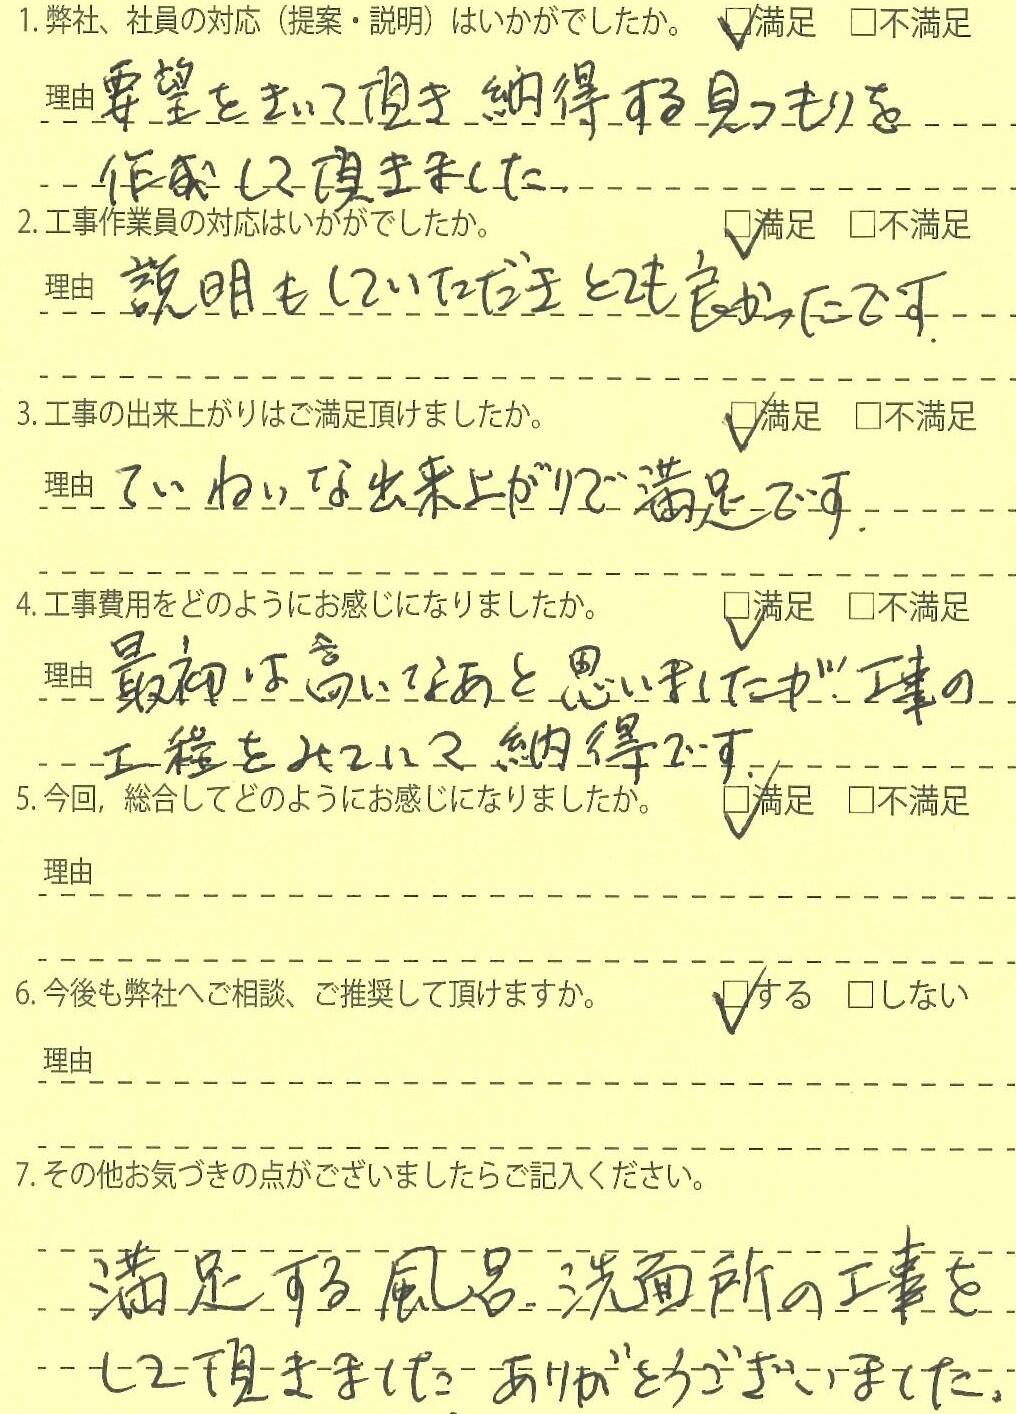 1. 弊社、社員の対応（提案・説明）はいかがでしたか。 ☑満足 □不満足
理由 要望をきいて頂き 納得する見つもりを
作成して頂きました.
2. 工事作業員の対応はいかがでしたか。 ☑満足 □不満足
理由 説明もしていただき とても良かったです.
3. 工事の出来上がりはご満足頂けましたか。 ☑満足 □不満足
理由 ていねいな出来上がりで満足です.
4. 工事費用をどのようにお感じになりましたか。 ☑満足 □不満足
理由 最初は高いなあと思いましたが. 工事の
工程をみていて 納得です.
5. 今回, 総合してどのようにお感じになりましたか。 ☑満足 □不満足
理由
6. 今後も弊社へご相談、ご推奨して頂けますか。 ☑する □しない
理由
7. その他お気づきの点がございましたらご記入ください。
満足する風呂. 洗面所の工事を
して頂きました ありがとうございました.